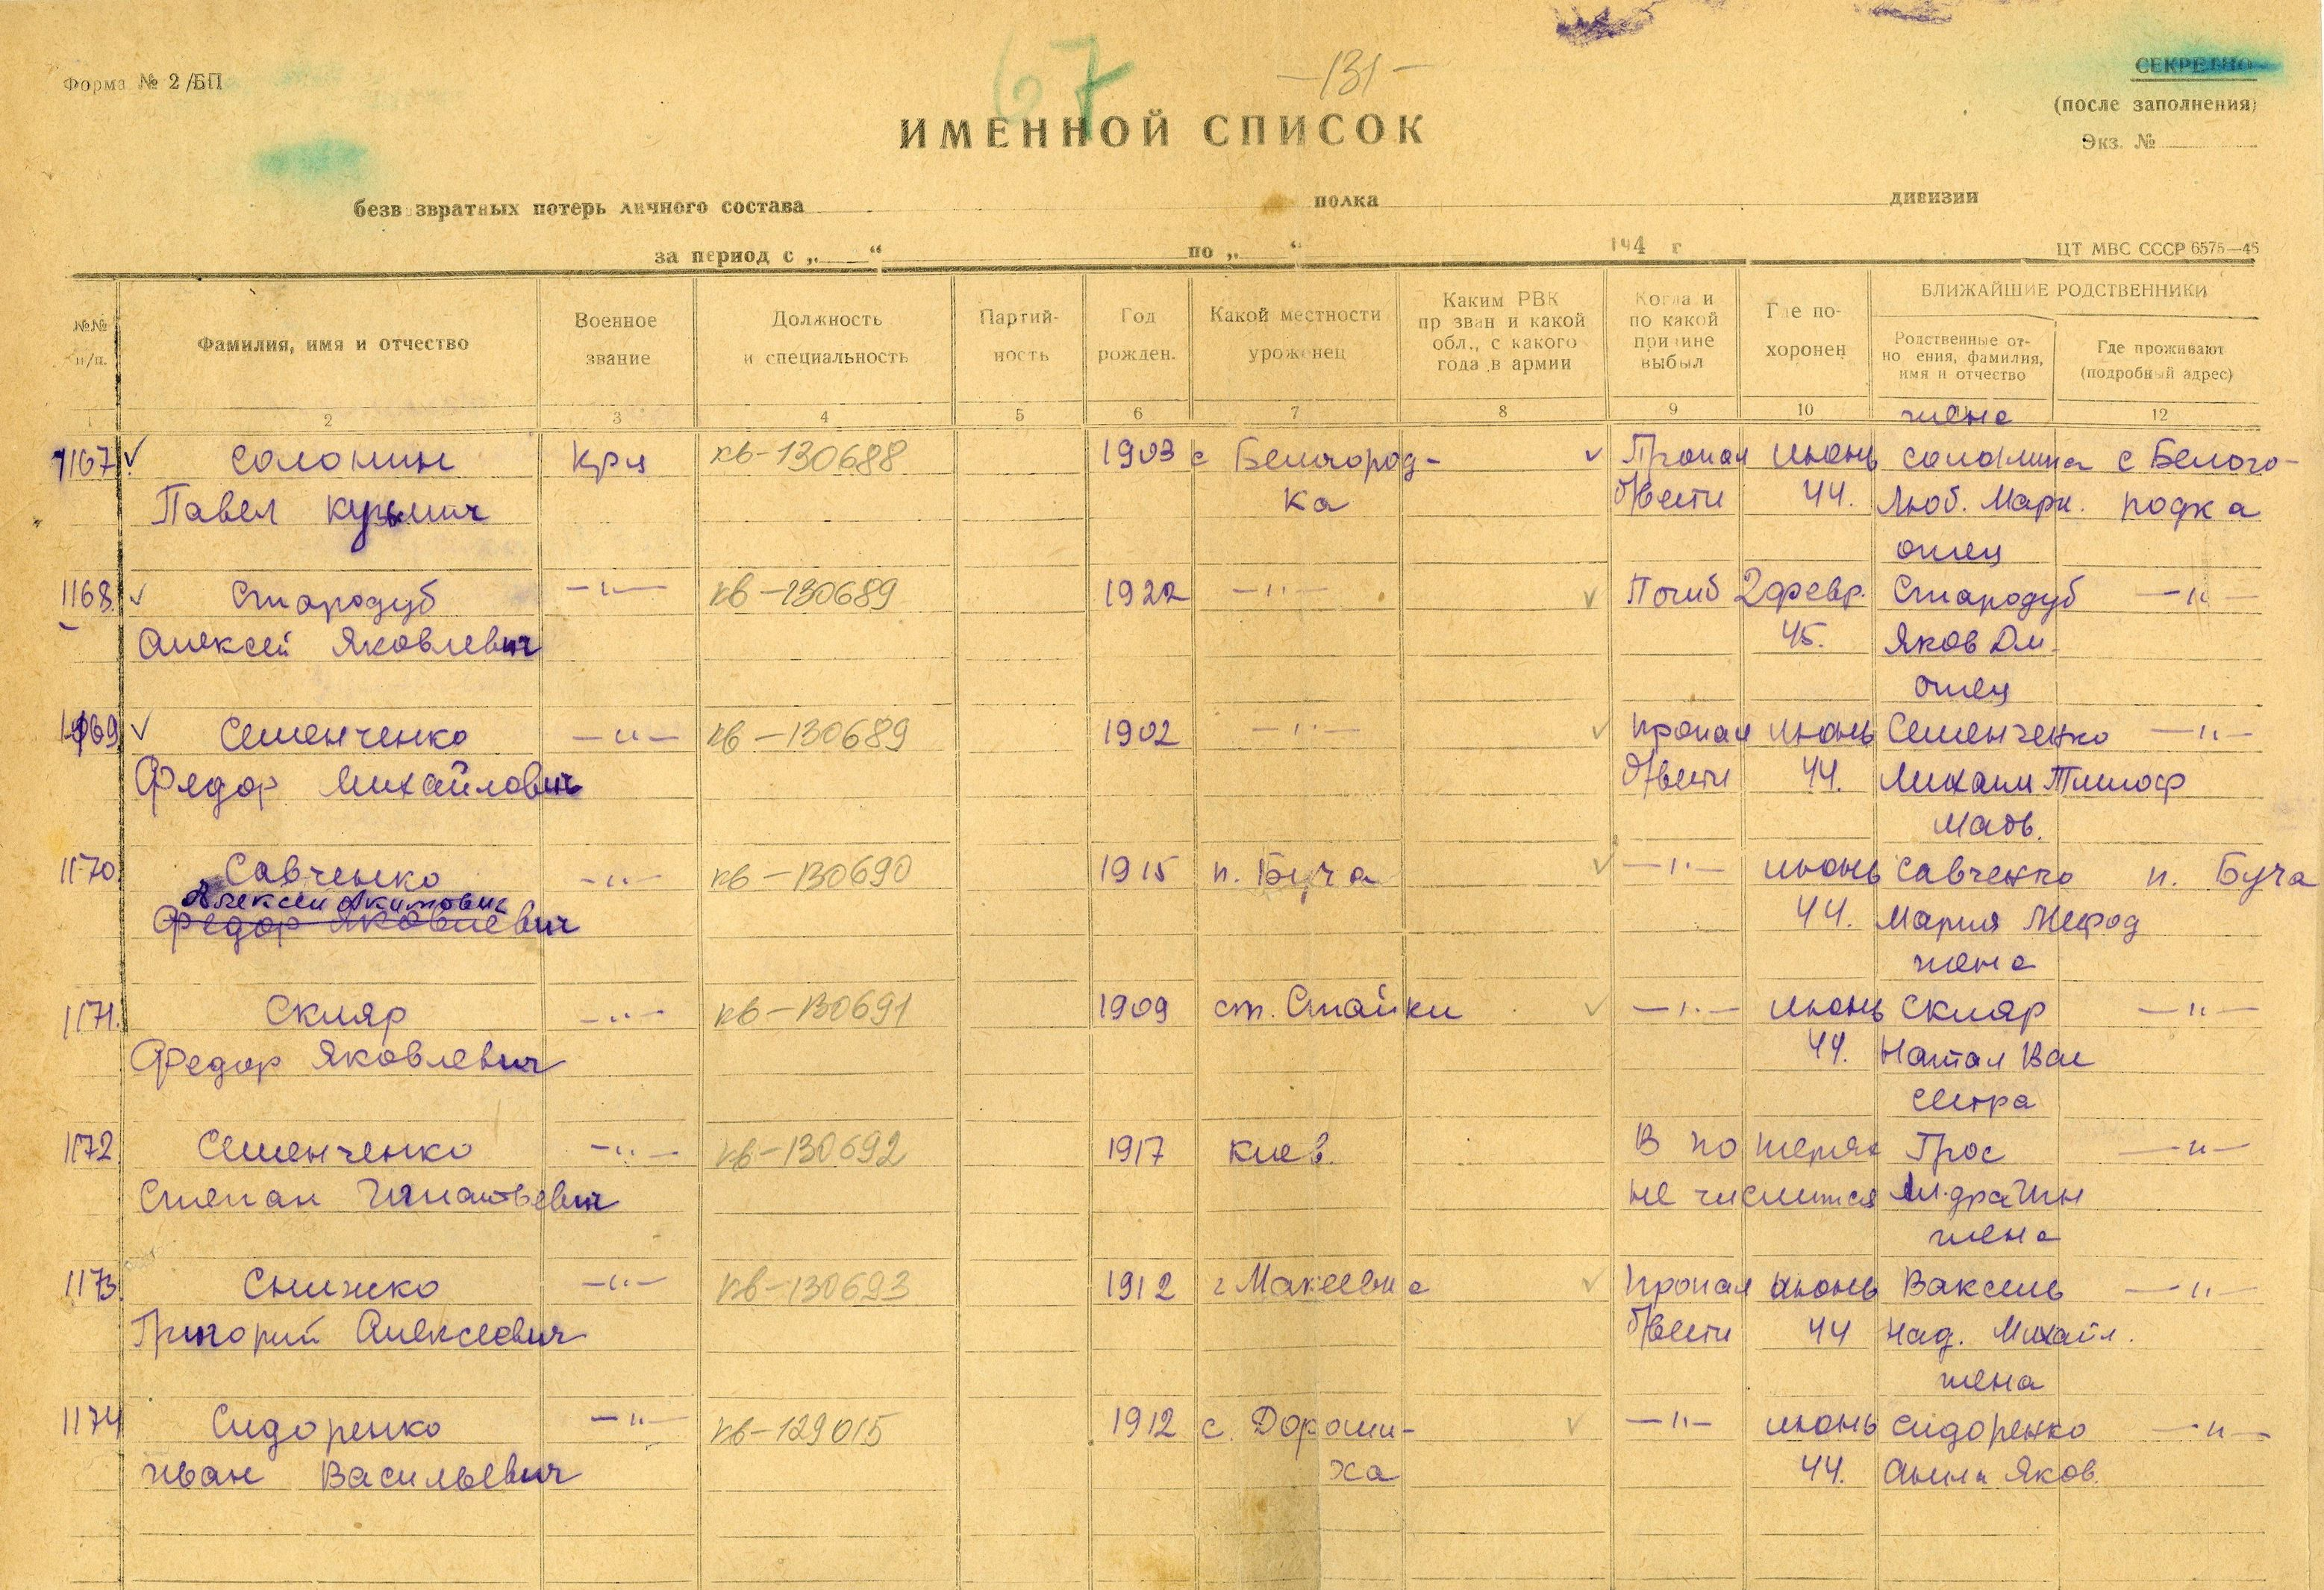 67
— 131 —
Форма № 2/БП
СЕКРЕТНО
(после заполнения)
Экз. №
ИМЕННОЙ СПИСОК
безвозвратных потерь личного состава полка дивизии
за период с „ “ по „ “ 194 г
ЦТ МВС СССР 6575—45
№№ п/п.
Фамилия, имя и отчество
Военное звание
Должность и специальность
Партийность
Год рожден.
Какой местности уроженец
Каким РВК призван и какой обл., с какого года в армии
Когда и по какой причине выбыл
Где похоронен
БЛИЖАЙШИЕ РОДСТВЕННИКИ
Родственные отношения, фамилия, имя и отчество
Где проживают (подробный адрес)
1 2 3 4 5 6 7 8 9 10 12
жена
1167 ✓ Солонин Крц кв-130688 1903 с Белгород- ✓ Пропал июнь Солонина с Белого-
Павел Кузьмич ка б/вести 44. Люб. Марк. родка
отец
1168. ✓ Стародуб —"— кв-130689 1922 —"— ✓ Погиб 2 февр. Стародуб —"—
Алексей Яковлевич 45. Яков Дм.
отец
1169 ✓ Семенченко —"— кв-130689 1902 —"— ✓ пропал июнь Семенченко —"—
Федор Михайлович б/вести 44. Михаил Тимоф
мать.
1170. Савченко —"— кв-130690 1915 п. Буча ✓ —"— июнь Савченко п. Буча
Алексей Акимович
Федор Яковлевич 44. Мария Мефод
жена
1171. Скляр —"— кв-130691 1909 ст. Стайки ✓ —"— июнь Скляр —"—
Федор Яковлевич 44. Натал Вас
сестра
1172 Семенченко —"— кв-130692 1917 Киев. В потерях Грос —"—
Степан Игнатьевич не числится
жена
1173. Снижко —"— кв-130693 1912 г Макеевка ✓ пропал июнь Ваксель —"—
Григорий Алексеевич б/вести 44 Над. Михайл.
жена
1174 Сидоренко —"— кв-129015 1912 с. Дороши- ✓ —"— июнь Сидоренко —"—
Иван Васильевич ха 44. Анна Яков.